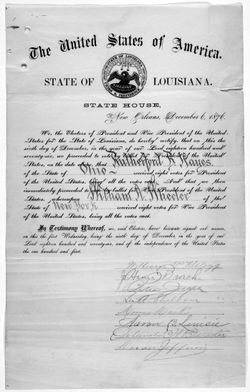 The United States of America.
STATE OF LOUISIANA.
STATE HOUSE,
New Orleans, December 6, 1876.
We, the Electors of President and Vice President of the United
States for the State of Louisiana, do hereby certify, that on this the
sixth day of December, in the year of our Lord eighteen hundred and
seventy-six, we proceeded to vote for President of the United
States, on the date above, that Rutherford B. Hayes
of the State of Ohio received eight votes for President
of the United States, being all the votes cast. And that we then
immediately proceeded to by ballot for Vice President of the United
States, whereupon William A. Wheeler of the
State of New York received eight votes for Vice President
of the United States, being all the votes cast.
In Testimony Whereof, we, said Electors, have hereunto signed our names,
on this the first Wednesday, being the sixth day of December, in the year of our
Lord eighteen hundred and seventy-six, and of the independence of the United States
the one hundred and first.
William P. Kellogg
Peter Joseph
Morris Marks
Aaron B. Levissee
Orlando H. Brewster
Oscar Joffrion